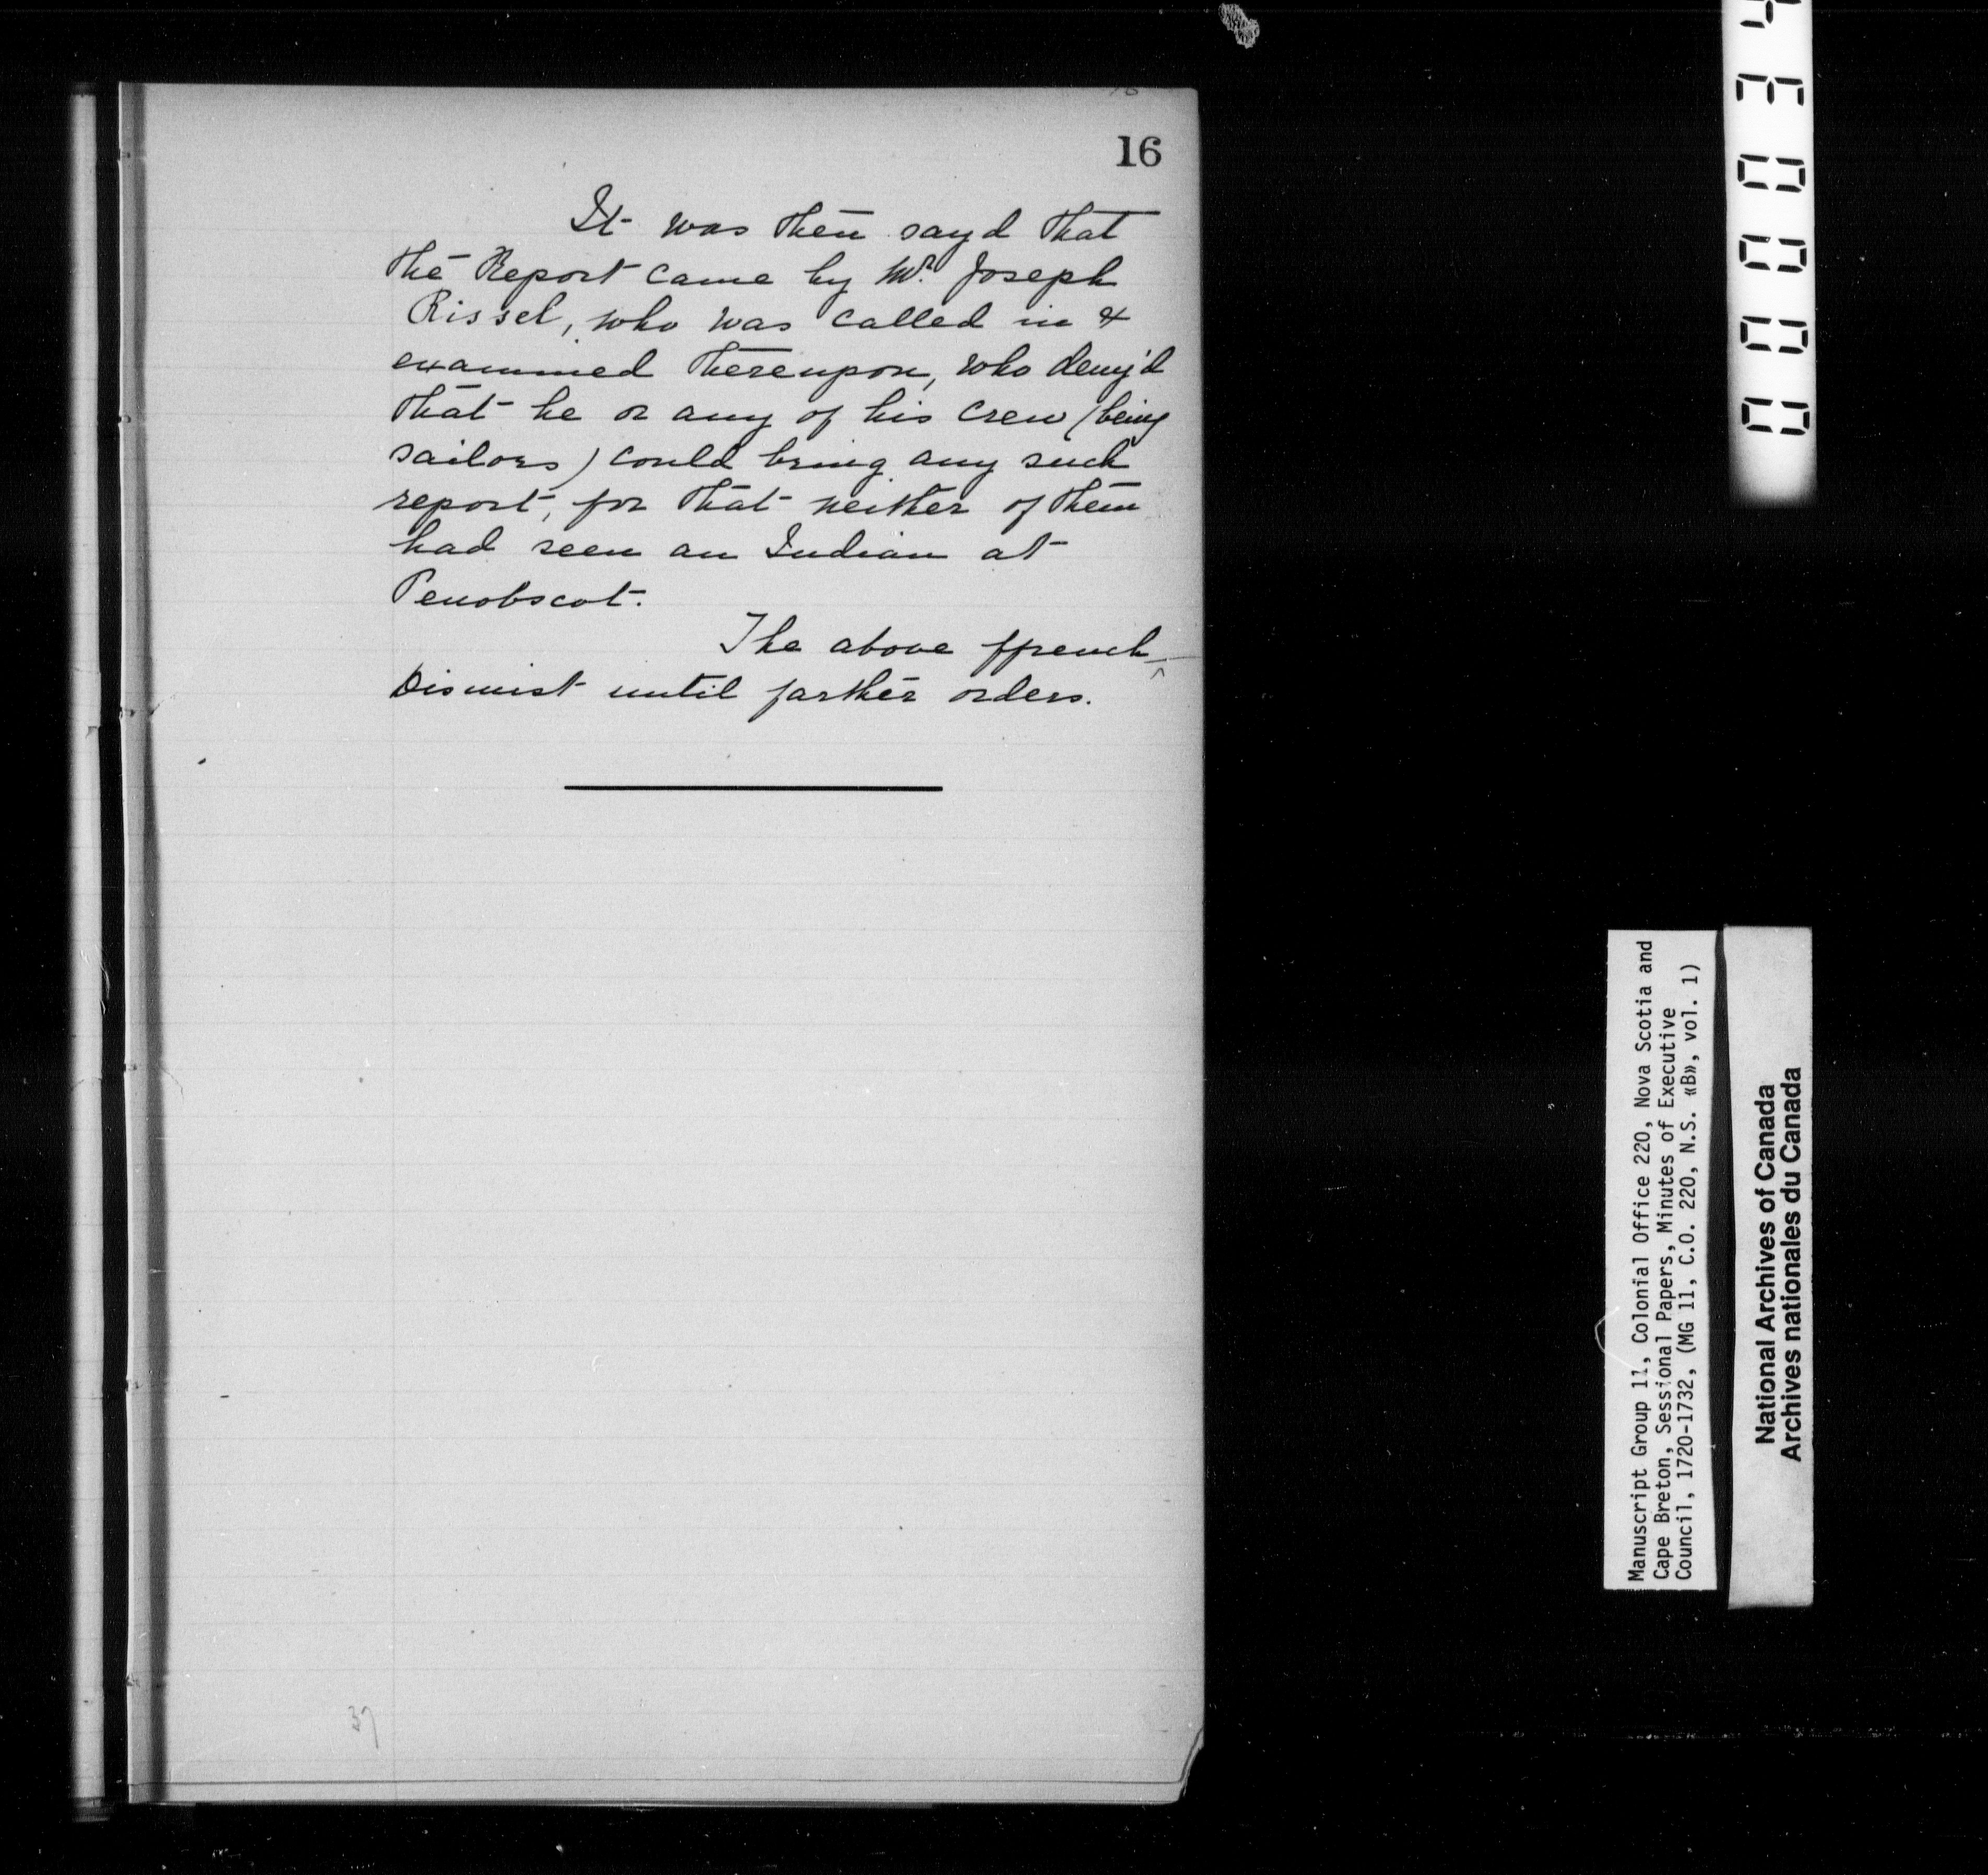 16
It was then sayd that
the Report came by Mr. Joseph
Rissel, who was called in &
examined thereupon, who deny'd
that he or any of his crew (being
sailors) could bring any such
report, for that neither of them
had seen an Indian at
Penobscot.
The above ffrench
Dismist until farther orders.
Manuscript Group 11, Colonial Office 220, Nova Scotia and
Cape Breton, Sessional Papers, Minutes of Executive
Council, 1720-1732, (MG 11, C.O. 220, N.S. «B», vol. 1)
National Archives of Canada
Archives nationales du Canada